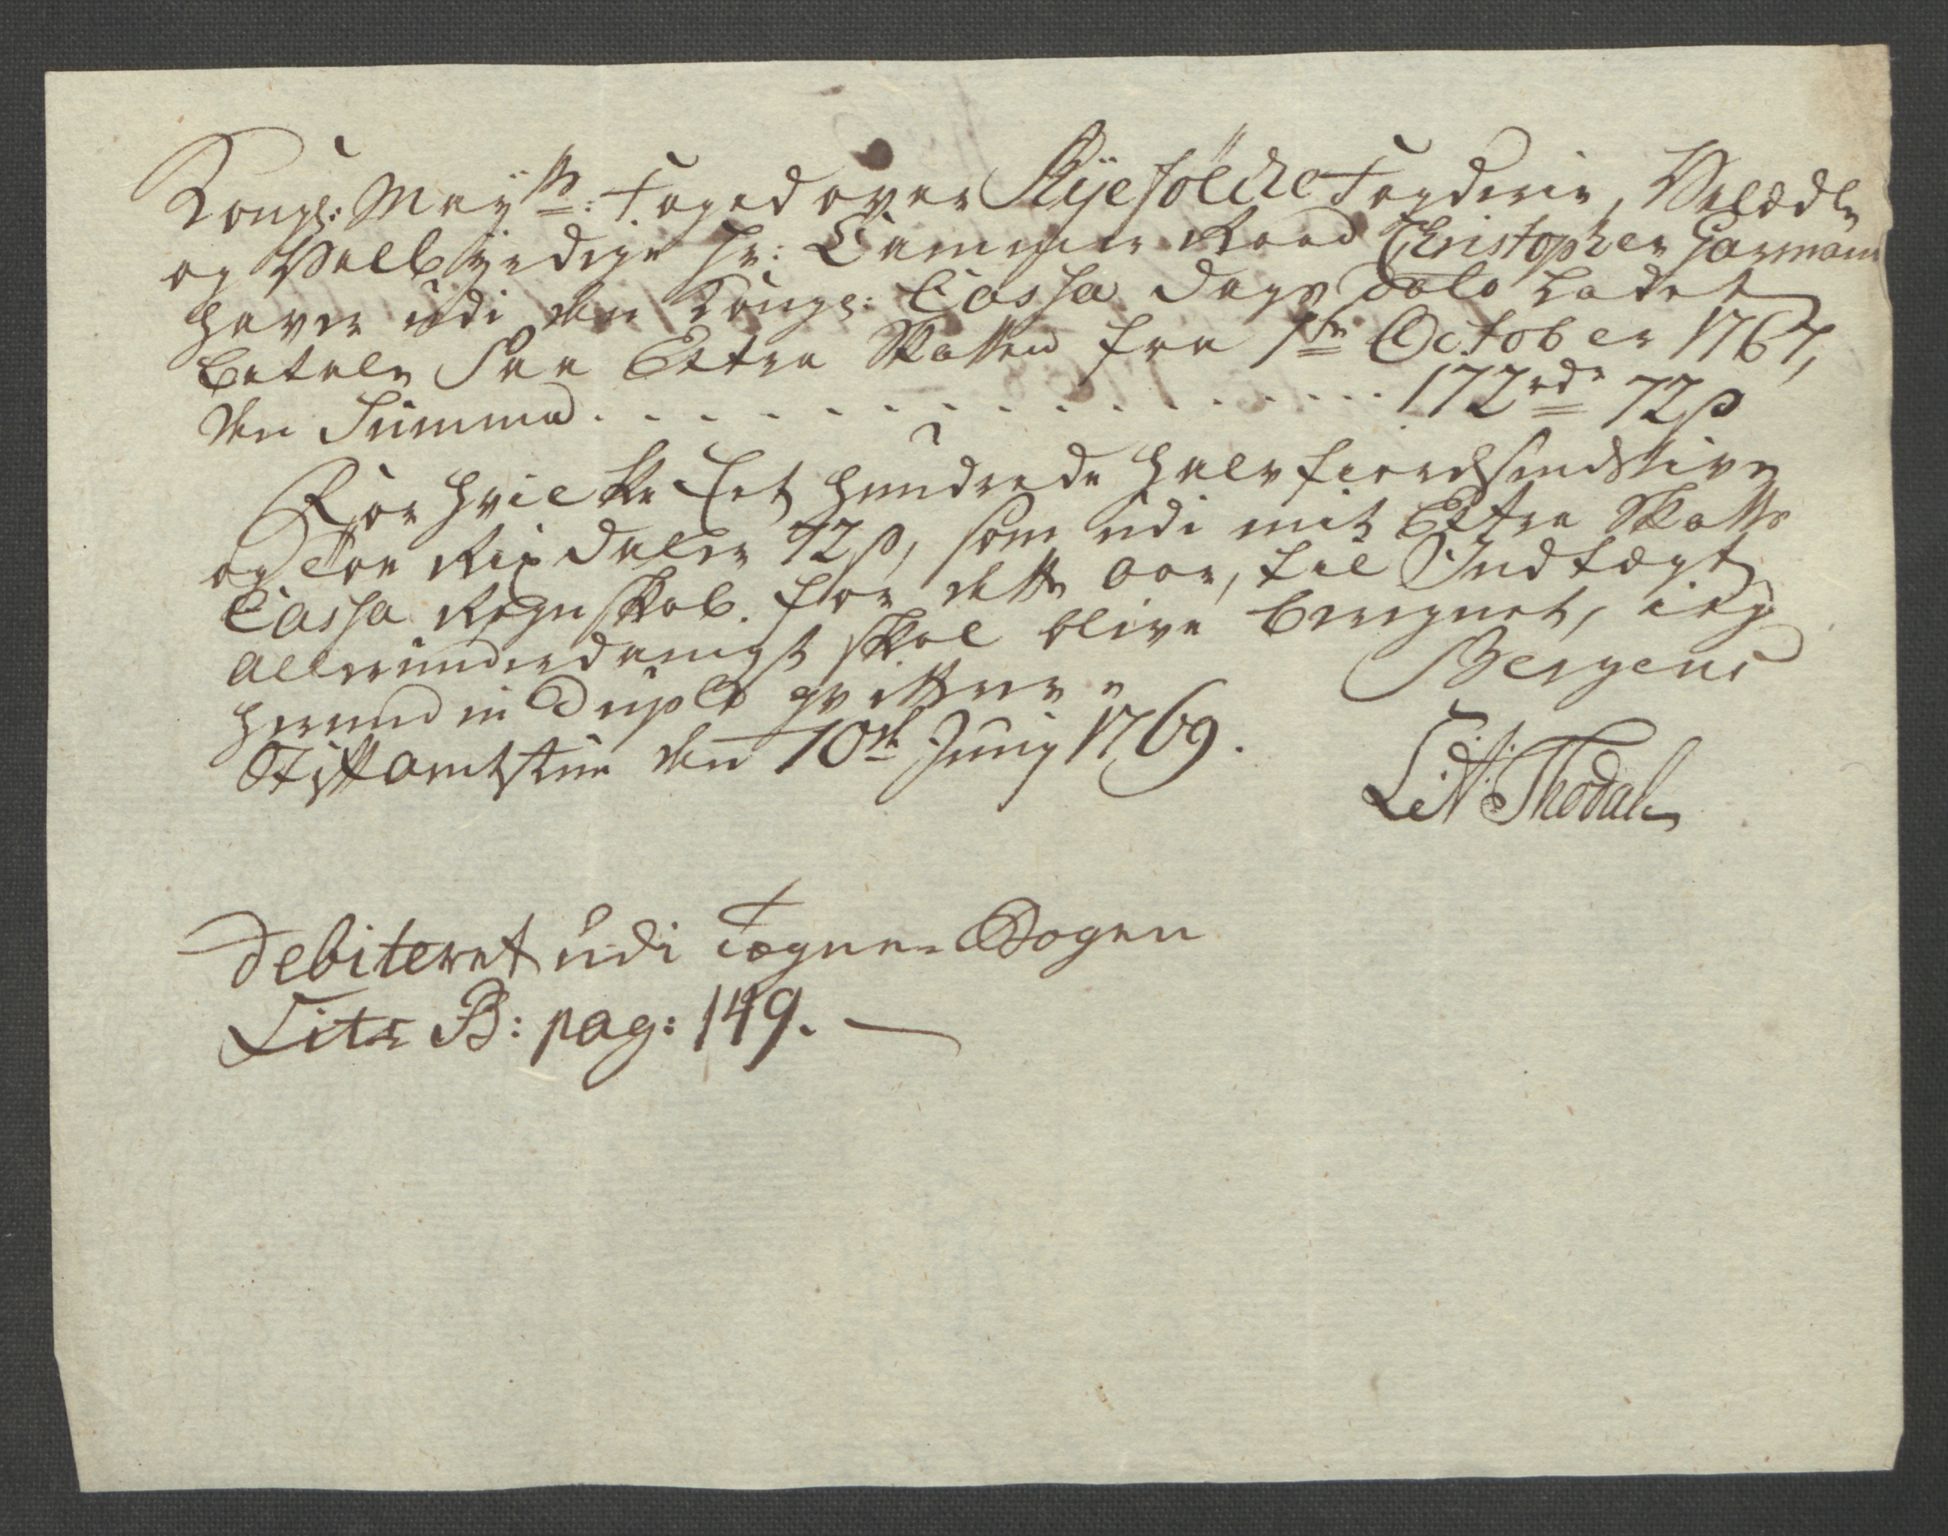 Kongl: Mayts: Foged over Ryefölcke Fogderie, Velædle
og Velbyrdige Hr: Cammer Raad Christopher Garmann
haver udi den Kongl: Cassa Dags Dato ladet
betale paa Extra Skatten fra 1ste October 1767,
den Summa . . . . . . . . . . . . . . 172 rdr 72 ß
For hvilke Eet hundrede halvfierdsindstive
og Toe Rixdaler 72 ß, som udi mit Extra Skatts
Cassa Regnskab for dette Aar, til Indtægt
allerunderdanigst skal blive beregnet, ieg
herved in Duplo qvitterer
Bergens
Stiftamtstue den 10de Juny 1769.
L: A: Thodal
Debiteret udi Tegne-Bogen
Litr B: pag: 149.